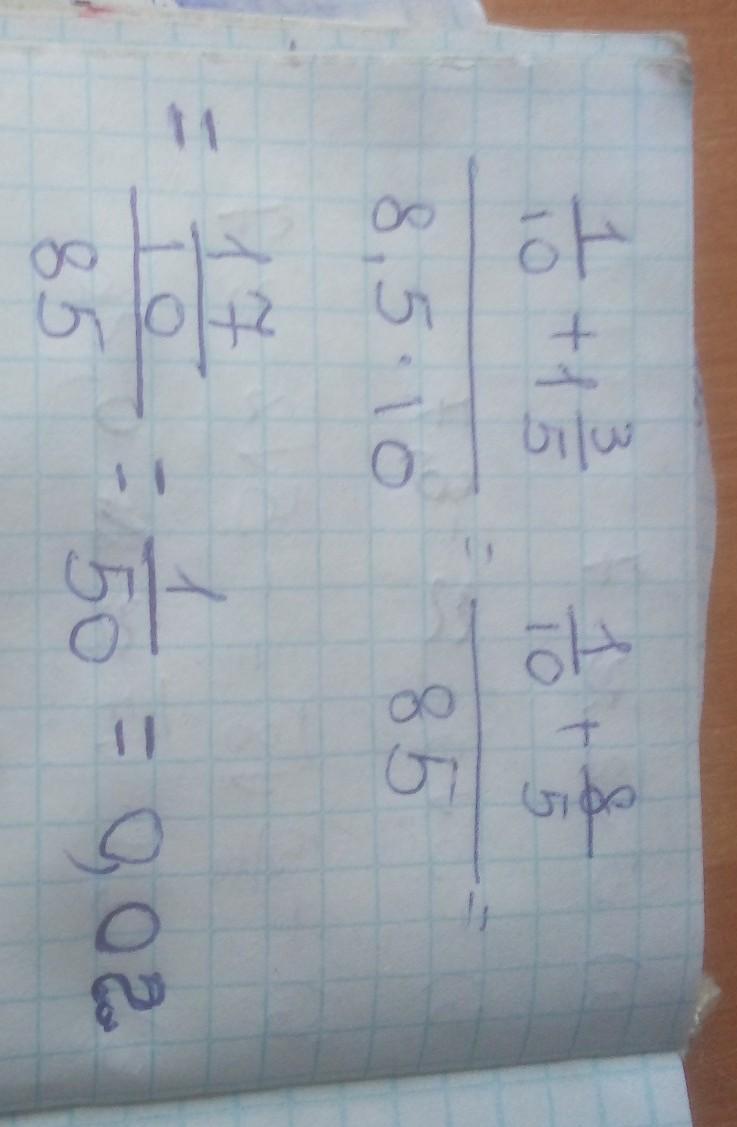 (1/10 + 1 3/5) / (8,5 · 10) = (1/10 + 8/5) / 85 =
= (17/10) / 85 = 1/50 = 0,02